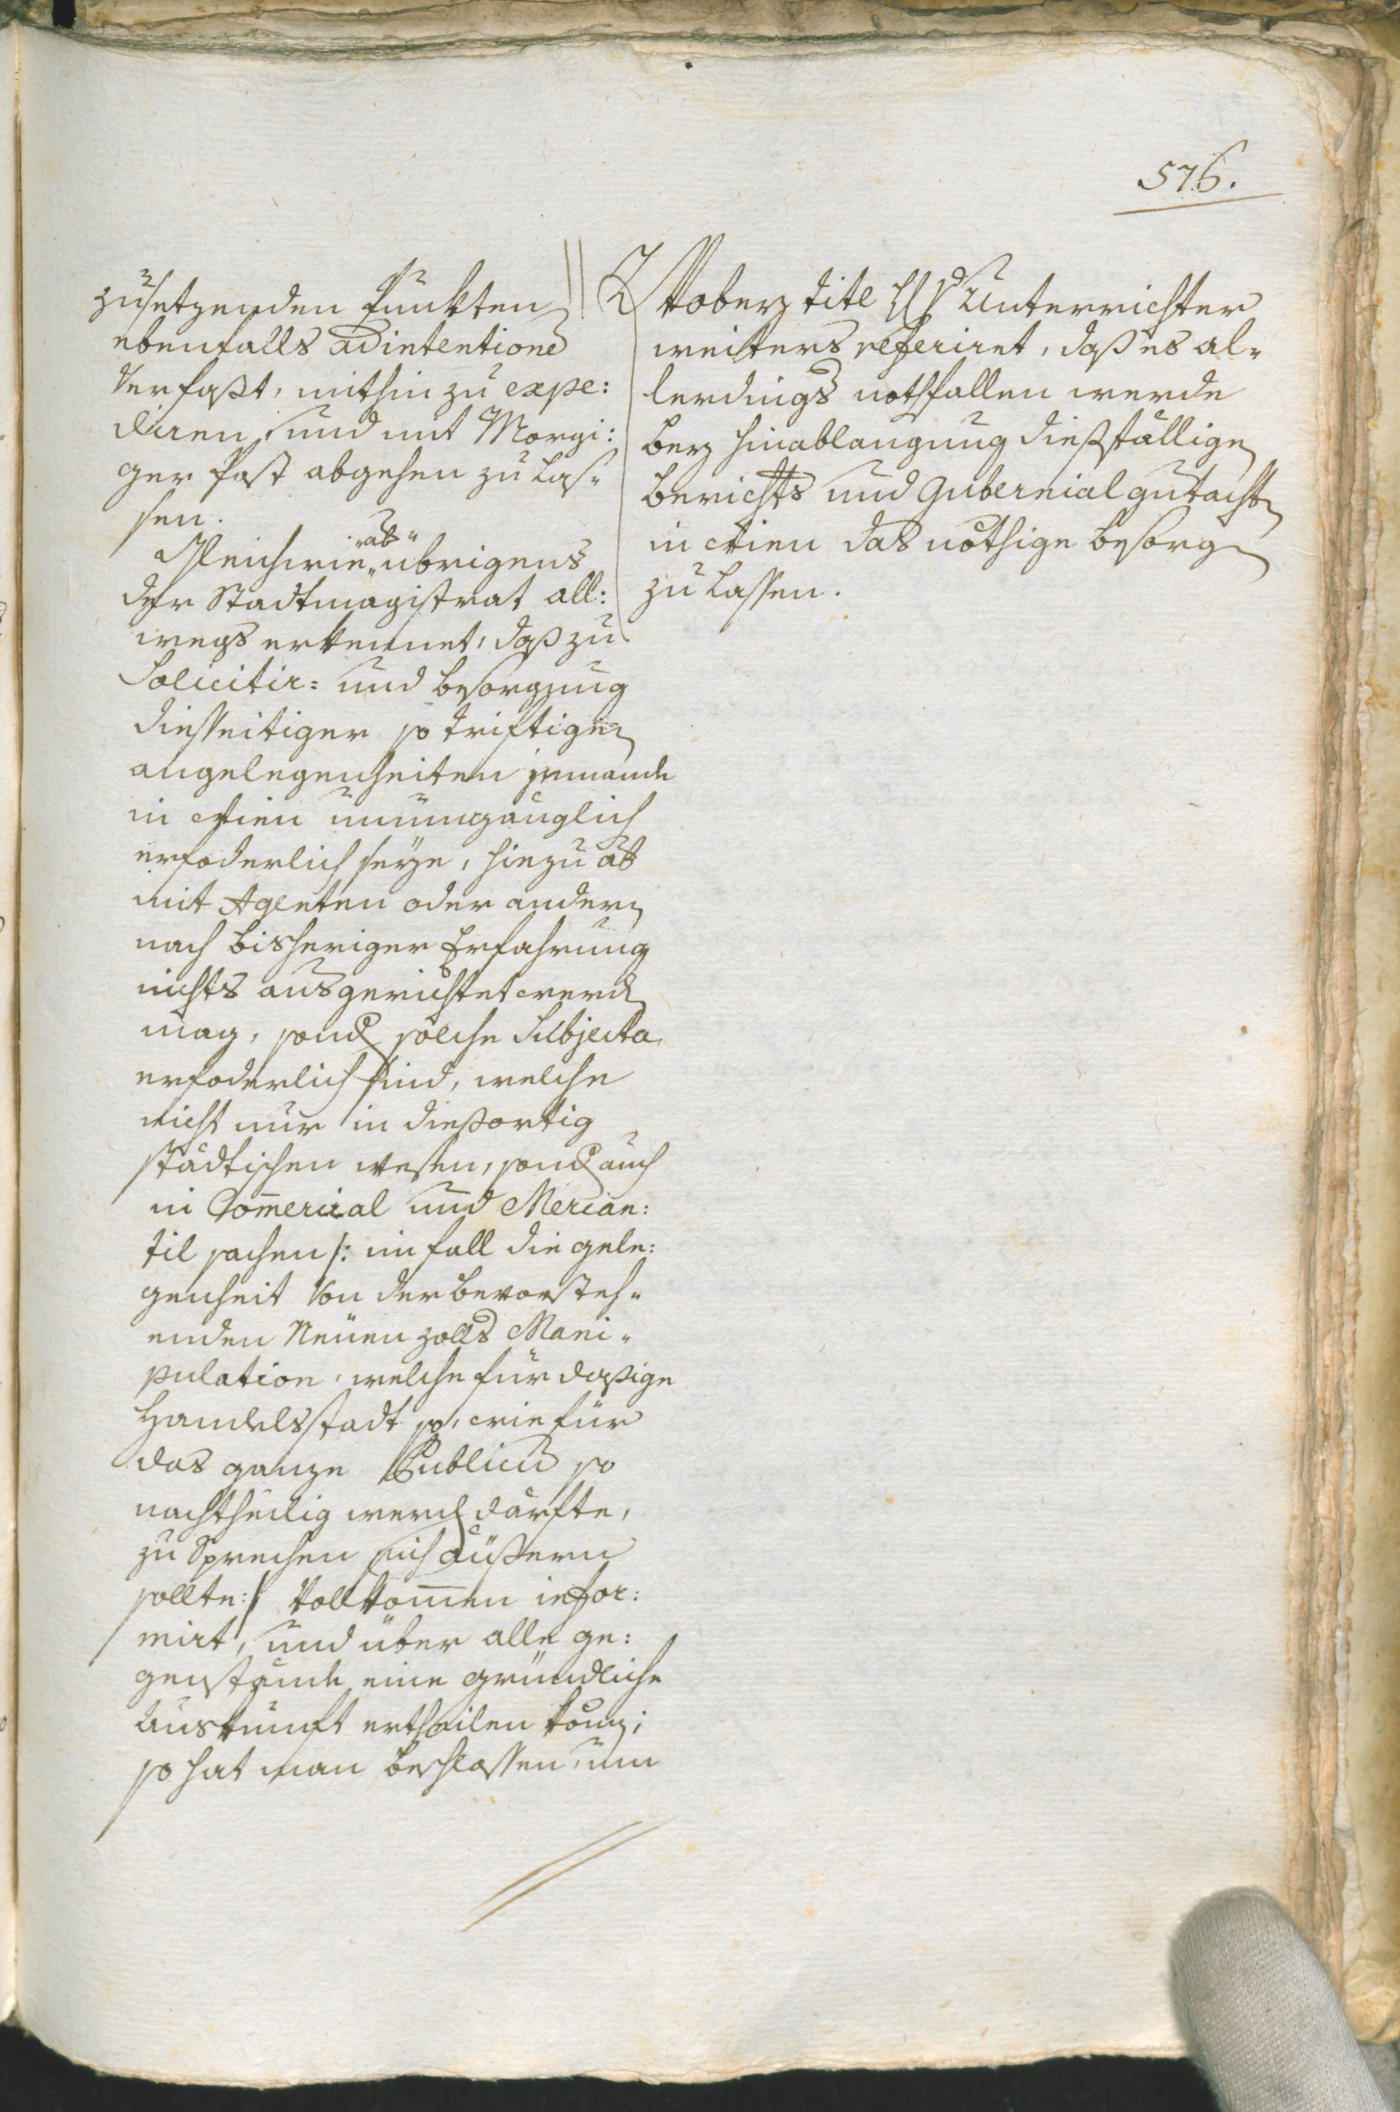 576.
zusetzenden Punkten
ebenfalls ad intentione
verfaßt, mithin zu expe:
diren, und mit Morgi:
ger Post abgehen zu las„
sen.
Gleichwie „ab“ übrigens
der Stadtmagistrat all:
wegs erkennet, daß zu
Solicitir= und besorgung
dießseitiger so triftigen
angelegenheiten jemande
in Wien unumgänglich
erfoderlich seye, hiezu ab
mit Agenten oder andern
nach bisheriger Erfahrung
nichts ausgerichtet werden
mag, sond solche Subjecta
erfoderlich sind, welche
nicht nur in dießortig
städtischen wesen, sond auch
in Commercial und Mercan:
til sachen /: im fall die gele:
genheit von der bevorsteh„
enden Neuen zolls Mani„
pulation, welche für dasige
Handelsstadt so, wie für
das ganze Publicum so
nachtheilig werd dürfte,
zu Sprechen sich äußern
sollte :/ Vollkommen infor:
mirt, und über alle ge:
genstände eine gründliche
Auskunft ertheilen könn;
so hat man beschlossen, um
Woberz titl H Unterrichter
weiters referiret, daß es al„
lerdings nothfallen werde
berz hinablangung dießfälligen
berichts und Gubernial gutachten
in Wien das nöthige besorgen
zu lassen.